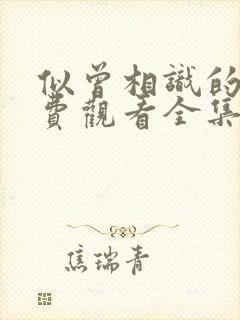 似曾相識的
費觀看全集
焦瑞青